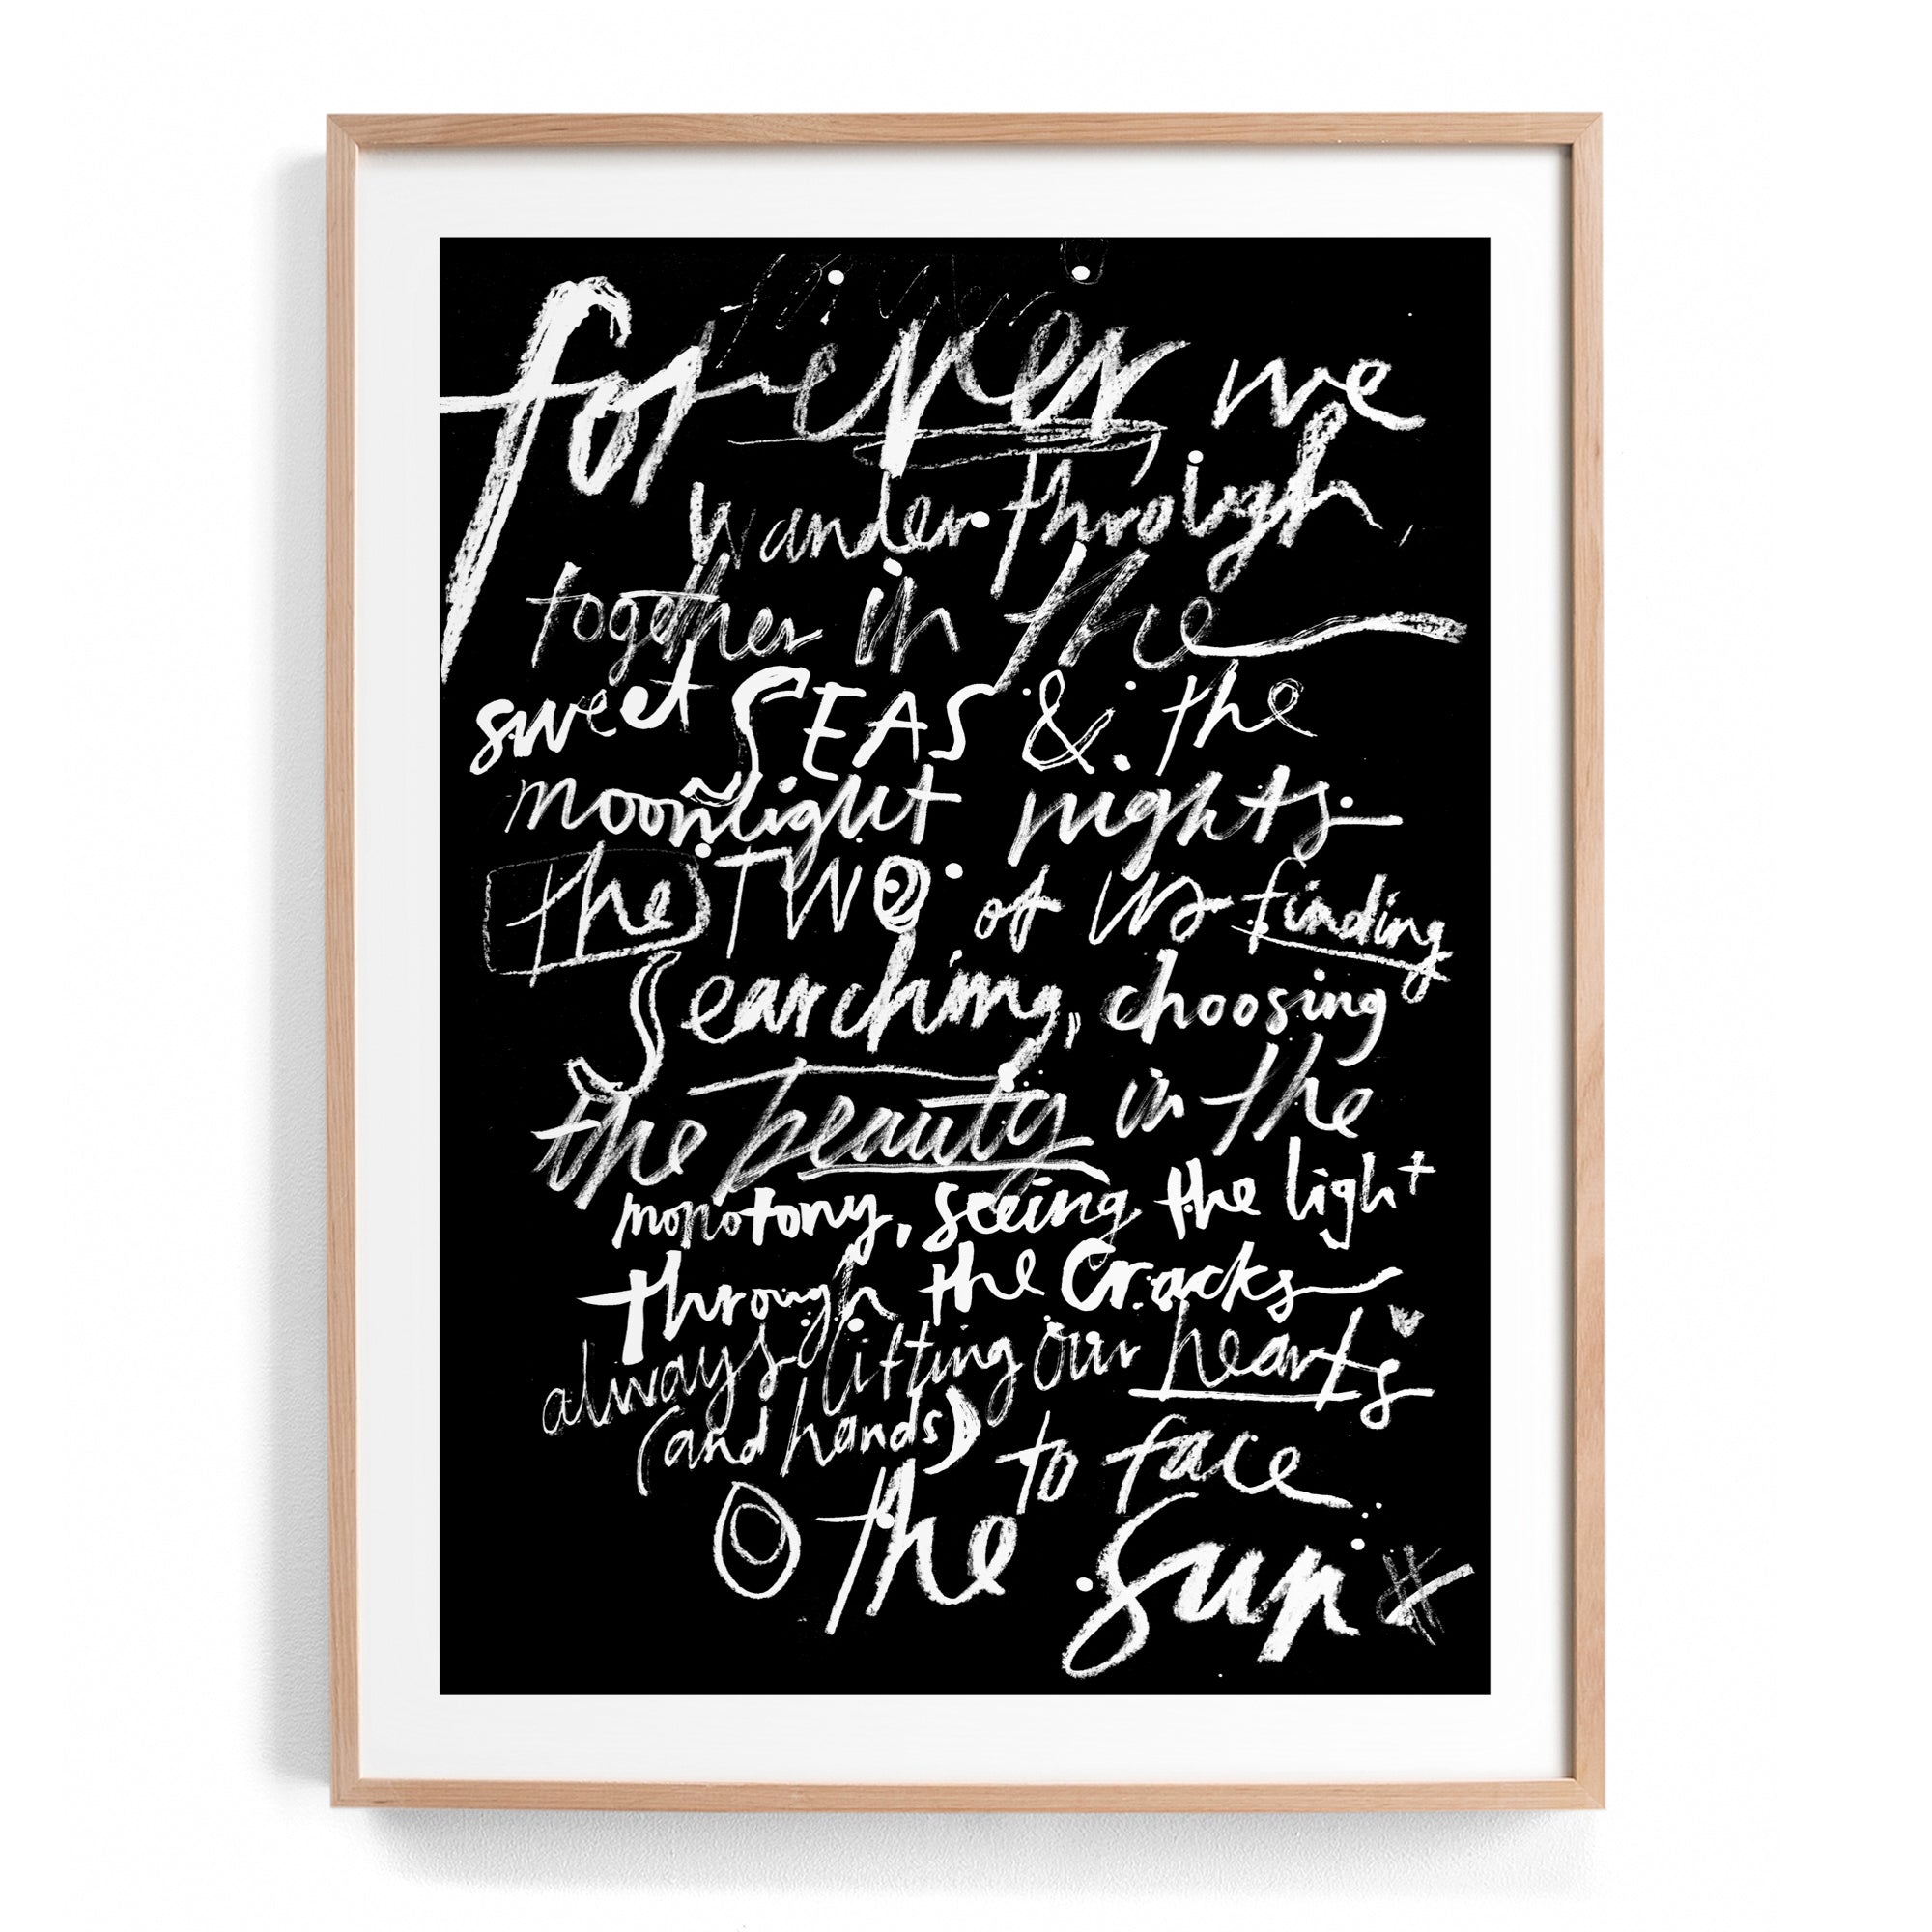 forever, we
wander through,
together in the
sweet SEAS & the
moonlight nights
the TWO of us finding
Searching, choosing
the beauty in the
monotony, seeing the light
through the cracks
always lifting our hearts
(and hands) to face
the sun